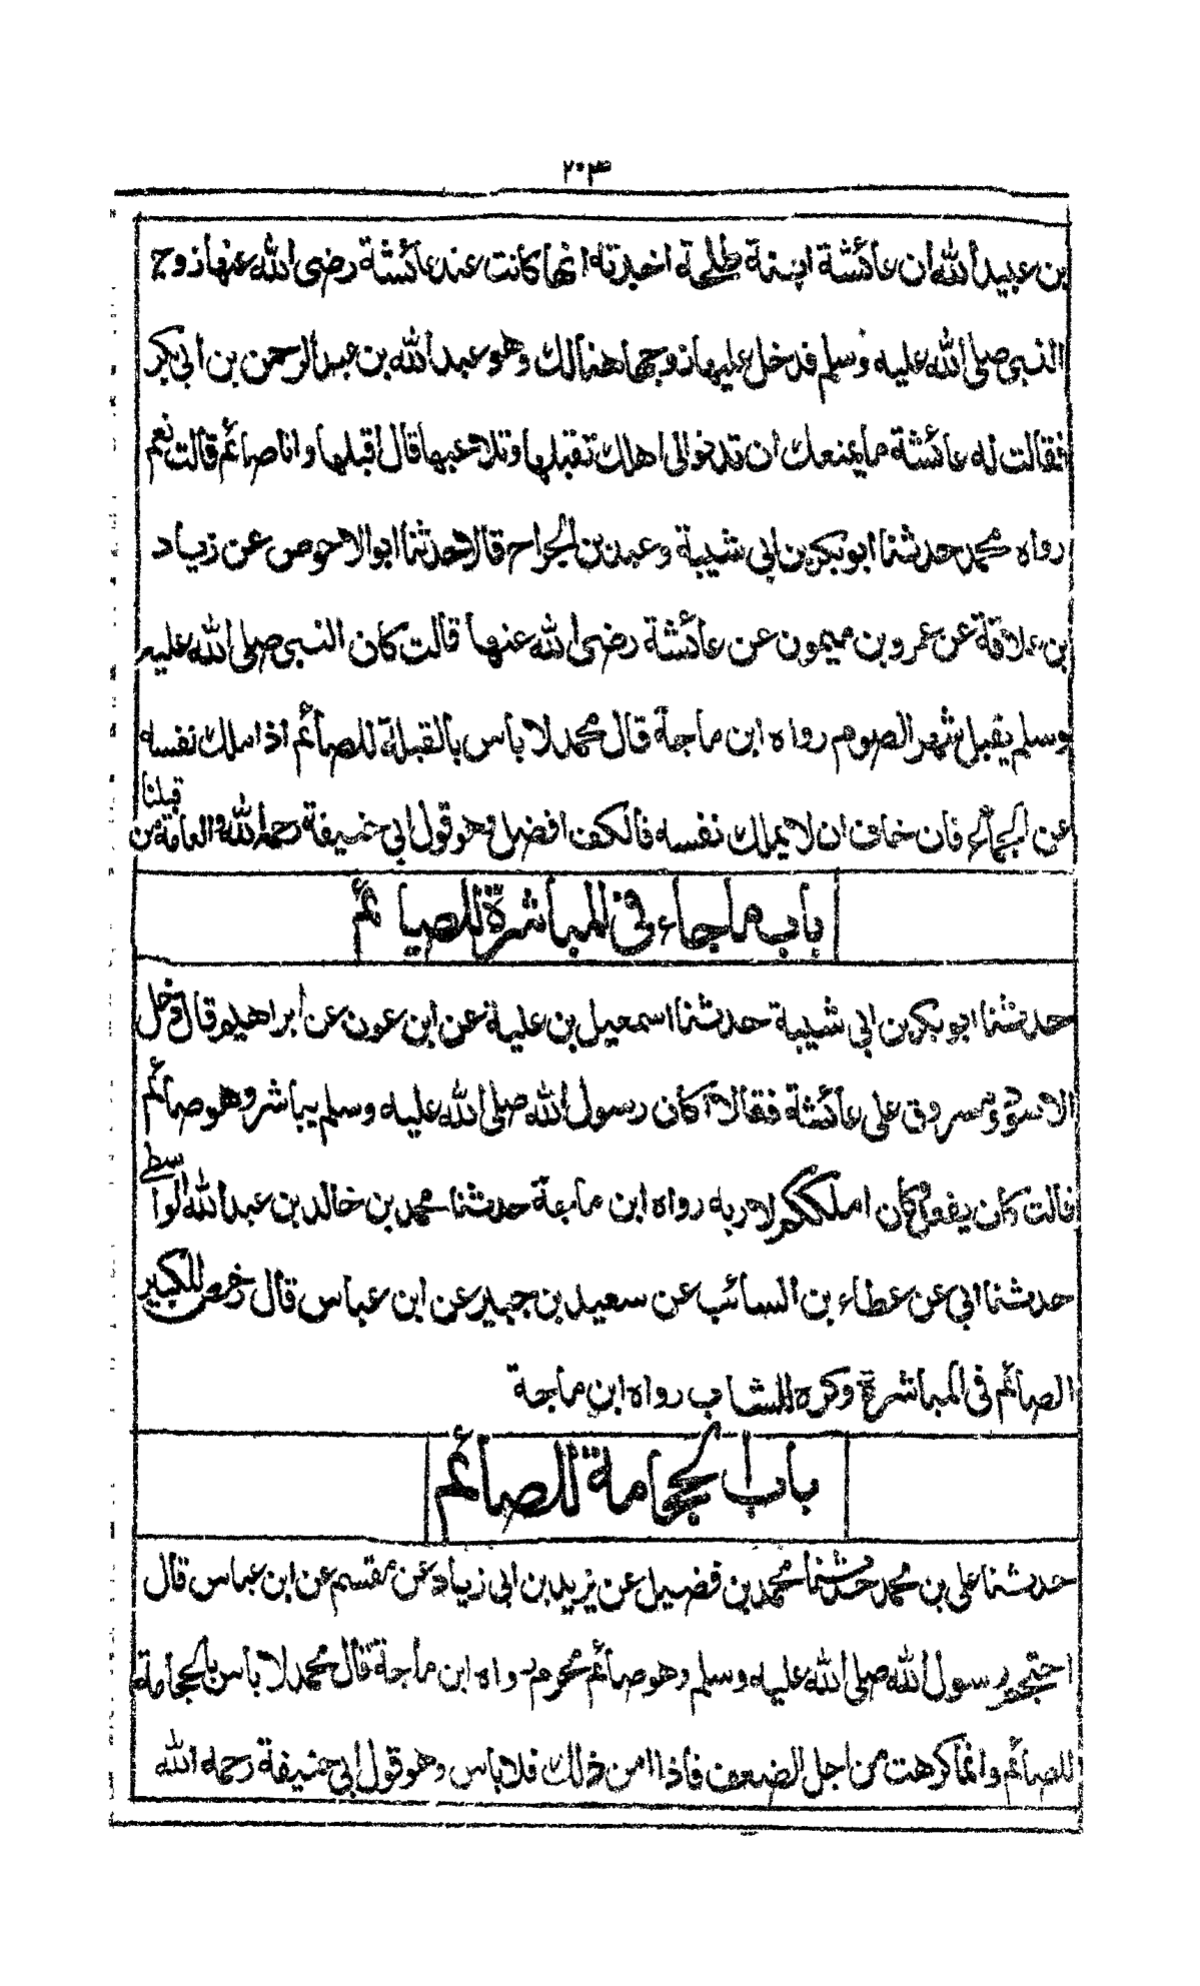 ٢٠٣
بن عبيد الله ان عائشة ابنة طلحة اخبرته انها كانت عند عائشة رضى الله عنها زوج
النبى صلى الله عليه وسلم فدخل عليها زوجها هنالك وهو عبد الله بن عبد الرحمن بن ابى بكر
فقالت له عائشة ما يمنعك ان تدنو الى اهلك تقبلها وتلاعبها قال اقبلها وانا صائم قالت نعم
رواه محمد حدثنا ابو بكر بن ابى شيبة وعبد بن الجراح قالا حدثنا ابو الاحوص عن زياد
بن علاقة عن عمرو بن ميمون عن عائشة رضى الله عنها قالت كان النبى صلى الله عليه
وسلم يقبل شهر الصوم رواه ابن ماجة قال محمد لا باس بالقبلة للصائم اذا ملك نفسه
عن الجماع فان خاف ان لا يملك نفسه فالكف افضل وهو قول ابى حنيفة رحمه الله والعامة من قبلنا
باب ماجاء فى المباشرة للصيائم
حدثنا ابو بكر بن ابى شيبة حدثنا اسمعيل بن علية عن ابن عون عن ابراهيم قال دخل
الاسود ومسروق على عائشة فقالا اكان رسول الله صلى الله عليه وسلم يباشر وهو صائم
قالت كان يفعل وكان املككم لاربه رواه ابن ماجة حدثنا محمد بن خالد بن عبد الله الواسطى
حدثنا ابى عن عطاء بن السائب عن سعيد بن جبير عن ابن عباس قال رخص للكبير
الصائم فى المباشرة وكره للشاب رواه ابن ماجة
باب الحجامة للصائم
حدثنا على بن محمد حدثنا محمد بن فضيل عن يزيد بن ابى زياد عن مقسم عن ابن عباس قال
احتجم رسول الله صلى الله عليه وسلم وهو صائم محرم رواه ابن ماجة قال محمد لا باس بالحجامة
للصائم وانما كرهت من اجل الضعف فاذا امن ذلك فلا باس وهو قول ابى حنيفة رحمه الله